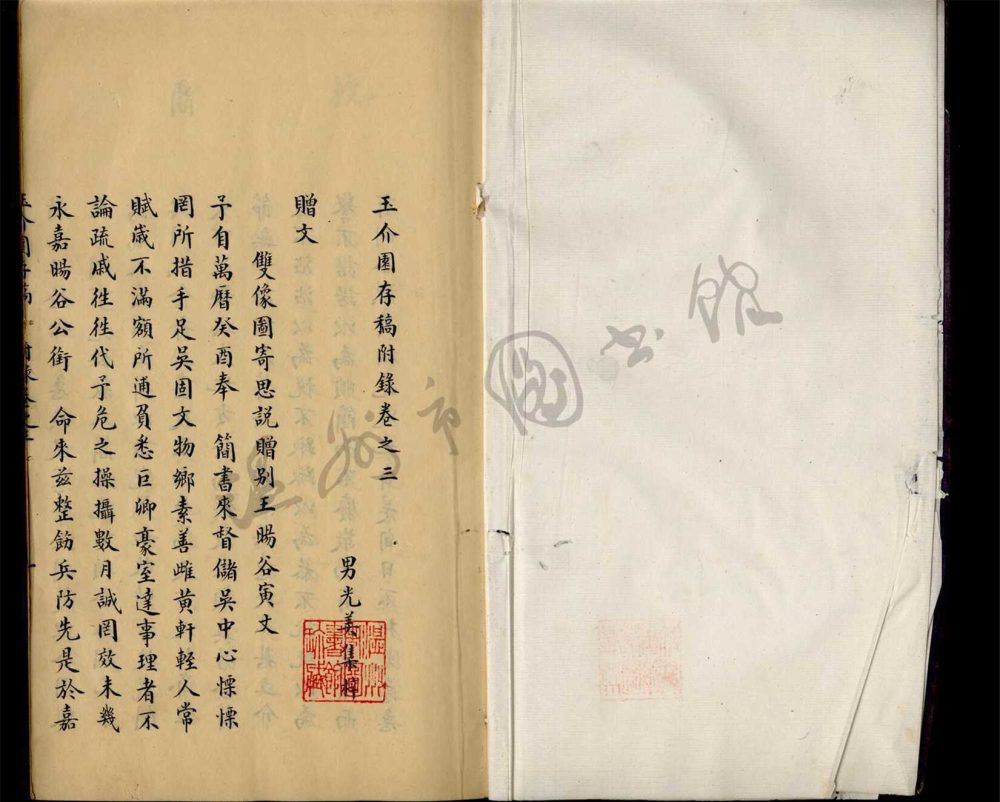 玉介園存稿附錄卷之三
男光美集梓
贈文
雙像圖寄思説贈别王暘谷寅文
予自萬曆癸酉奉　簡書來督儲吳中心慄慄
罔所措手足吳固文物鄉素善雌黄軒輊人常
賦歲不滿額所逋負悉巨卿豪室達事理者不
論疏戚徃徃代予危之操攝數月誠罔效未幾
永嘉暘谷公銜　命來兹整飭兵防先是於嘉
温州市圖書館